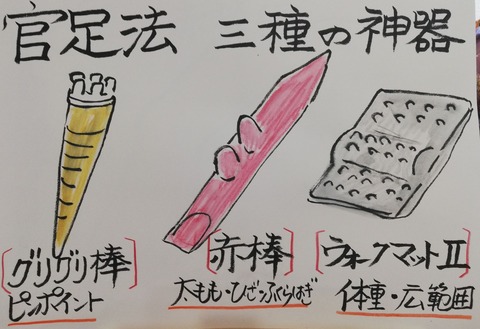 官足法 三種の神器
[グリグリ棒]
ピンポイント
[赤棒]
太もも・ひざ・ふくらはぎ
[ウォークマットII]
体重・広範囲